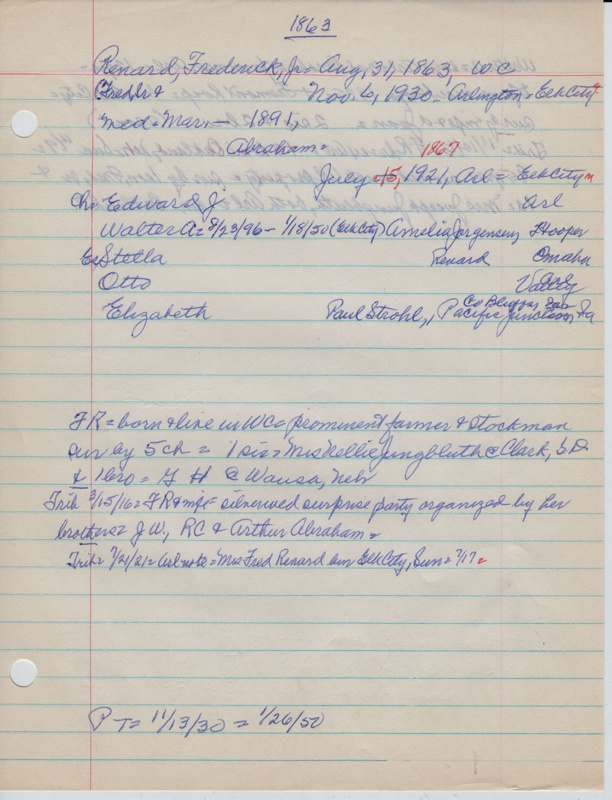 1863
Renard, Frederick, Jr = Aug, 31, 1863, W.C
(Fred Sr & Nov. 6, 1930 - Arlington = Elk City
med = Mar, - 1891,
Abraham = 1867
July 15, 1921, Arl = Elk City
Ch = Edward J. Arl
Walter A = 8/23/96 - 1/18/50 (Elk City) Amelia Jorgensen, Hooper
Stella Renard Omaha
Otto Valley
Elizabeth Paul Strohl, Co Bluffs Pacific Junction, Ia
FR = born & live in WC = prominent farmer & stockman
sur by 5 ch = 1 sis = Mrs Nellie Jungbluth @ Clark, S.D
& 1 bro = G H @ Wausa, Neb
Trib 3/15/16 = FR & wife = silverwed surprise party organized by her
brothers = J W, RC & Arthur Abraham =
Trib = 7/21/21 = Arl note = Mrs Fred Renard bur Elk City, Sun = 7/17 =
P T = 11/13/30 = 1/26/50